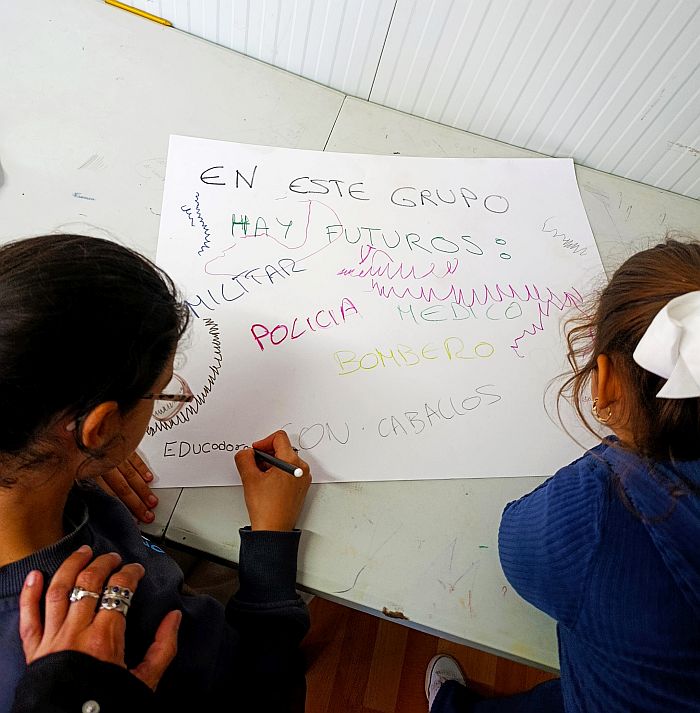 EN ESTE GRUPO
HAY FUTUROS:
MILITAR
POLICIA
MEDICO
BOMBERO
CON CABALLOS
EDUCador